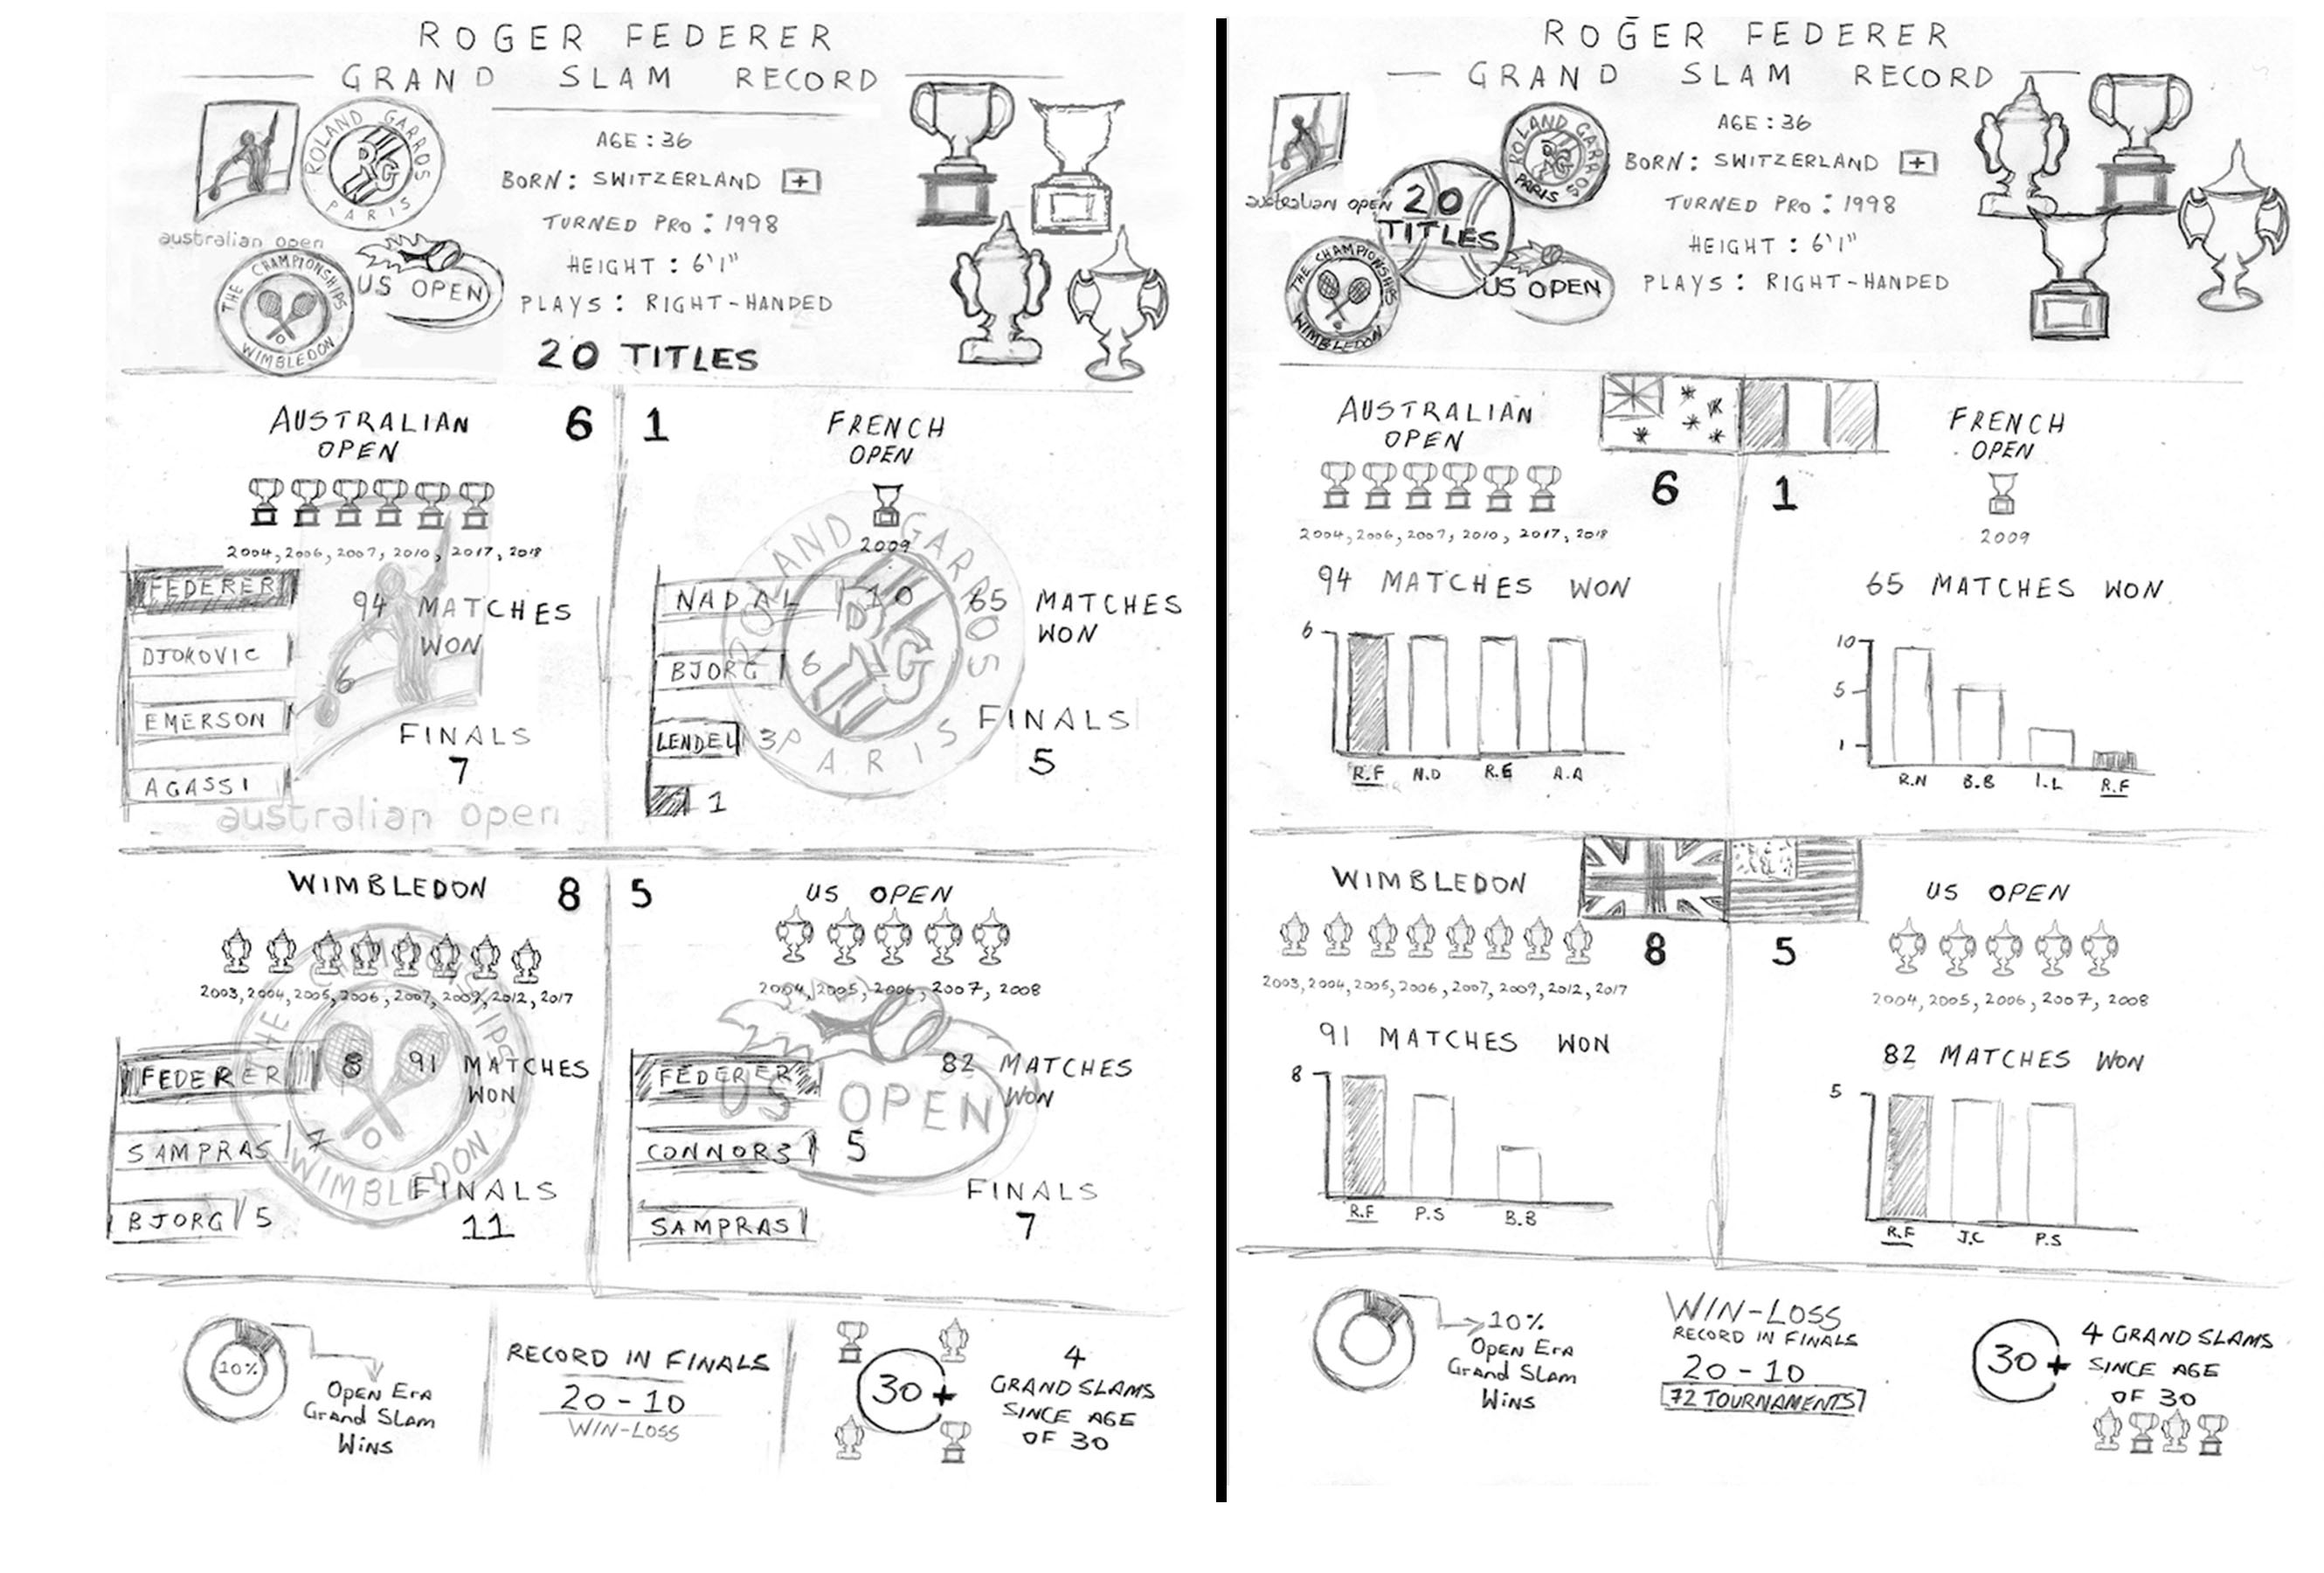 ROGER FEDERER
GRAND SLAM RECORD
ROLAND GARROS
RG
PARIS
australian open
THE CHAMPIONSHIPS
WIMBLEDON
US OPEN
AGE : 36
BORN : SWITZERLAND
TURNED PRO : 1998
HEIGHT : 6'1"
PLAYS : RIGHT-HANDED
20 TITLES
AUSTRALIAN
OPEN
6
2004, 2006, 2007, 2010, 2017, 2018
FEDERER
DJOKOVIC
6
EMERSON
AGASSI
94 MATCHES
WON
FINALS
7
australian open
1
FRENCH
OPEN
2009
ROLAND GARROS
RG
PARIS
NADAL 10
BJORG 6
LENDEL 3
1
65 MATCHES
WON
FINALS
5
WIMBLEDON
8
2003, 2004, 2005, 2006, 2007, 2009, 2012, 2017
THE CHAMPIONSHIPS
WIMBLEDON
FEDERER 8
SAMPRAS 7
BJORG 5
91 MATCHES
WON
FINALS
11
5
US OPEN
2004, 2005, 2006, 2007, 2008
US OPEN
FEDERER
CONNORS 5
SAMPRAS
82 MATCHES
WON
FINALS
7
10%
OPEN ErA
Grand Slam
Wins
RECORD IN FINALS
20 - 10
WIN-LOSS
30+
4
GRAND SLAMS
SINCE AGE
OF 30
ROGER FEDERER
GRAND SLAM RECORD
australian open
20
TITLES
ROLAND GARROS
RG
PARIS
THE CHAMPIONSHIPS
WIMBLEDON
US OPEN
AGE : 36
BORN : SWITZERLAND
TURNED PRO : 1998
HEIGHT : 6'1"
PLAYS : RIGHT-HANDED
AUSTRALIAN
OPEN
6
2004, 2006, 2007, 2010, 2017, 2018
94 MATCHES WON
6
R.F N.D R.E A.A
FRENCH
OPEN
1
2009
65 MATCHES WON
10
5
1
R.N B.B I.L R.F
WIMBLEDON
8
2003, 2004, 2005, 2006, 2007, 2009, 2012, 2017
91 MATCHES WON
8
R.F P.S B.B
US OPEN
5
2004, 2005, 2006, 2007, 2008
82 MATCHES WON
5
R.F J.C P.S
10%
OPEN ErA
Grand Slam
Wins
WIN-LOSS
RECORD IN FINALS
20 - 10
72 TOURNAMENTS
30+
4 GRAND SLAMS
SINCE AGE
OF 30